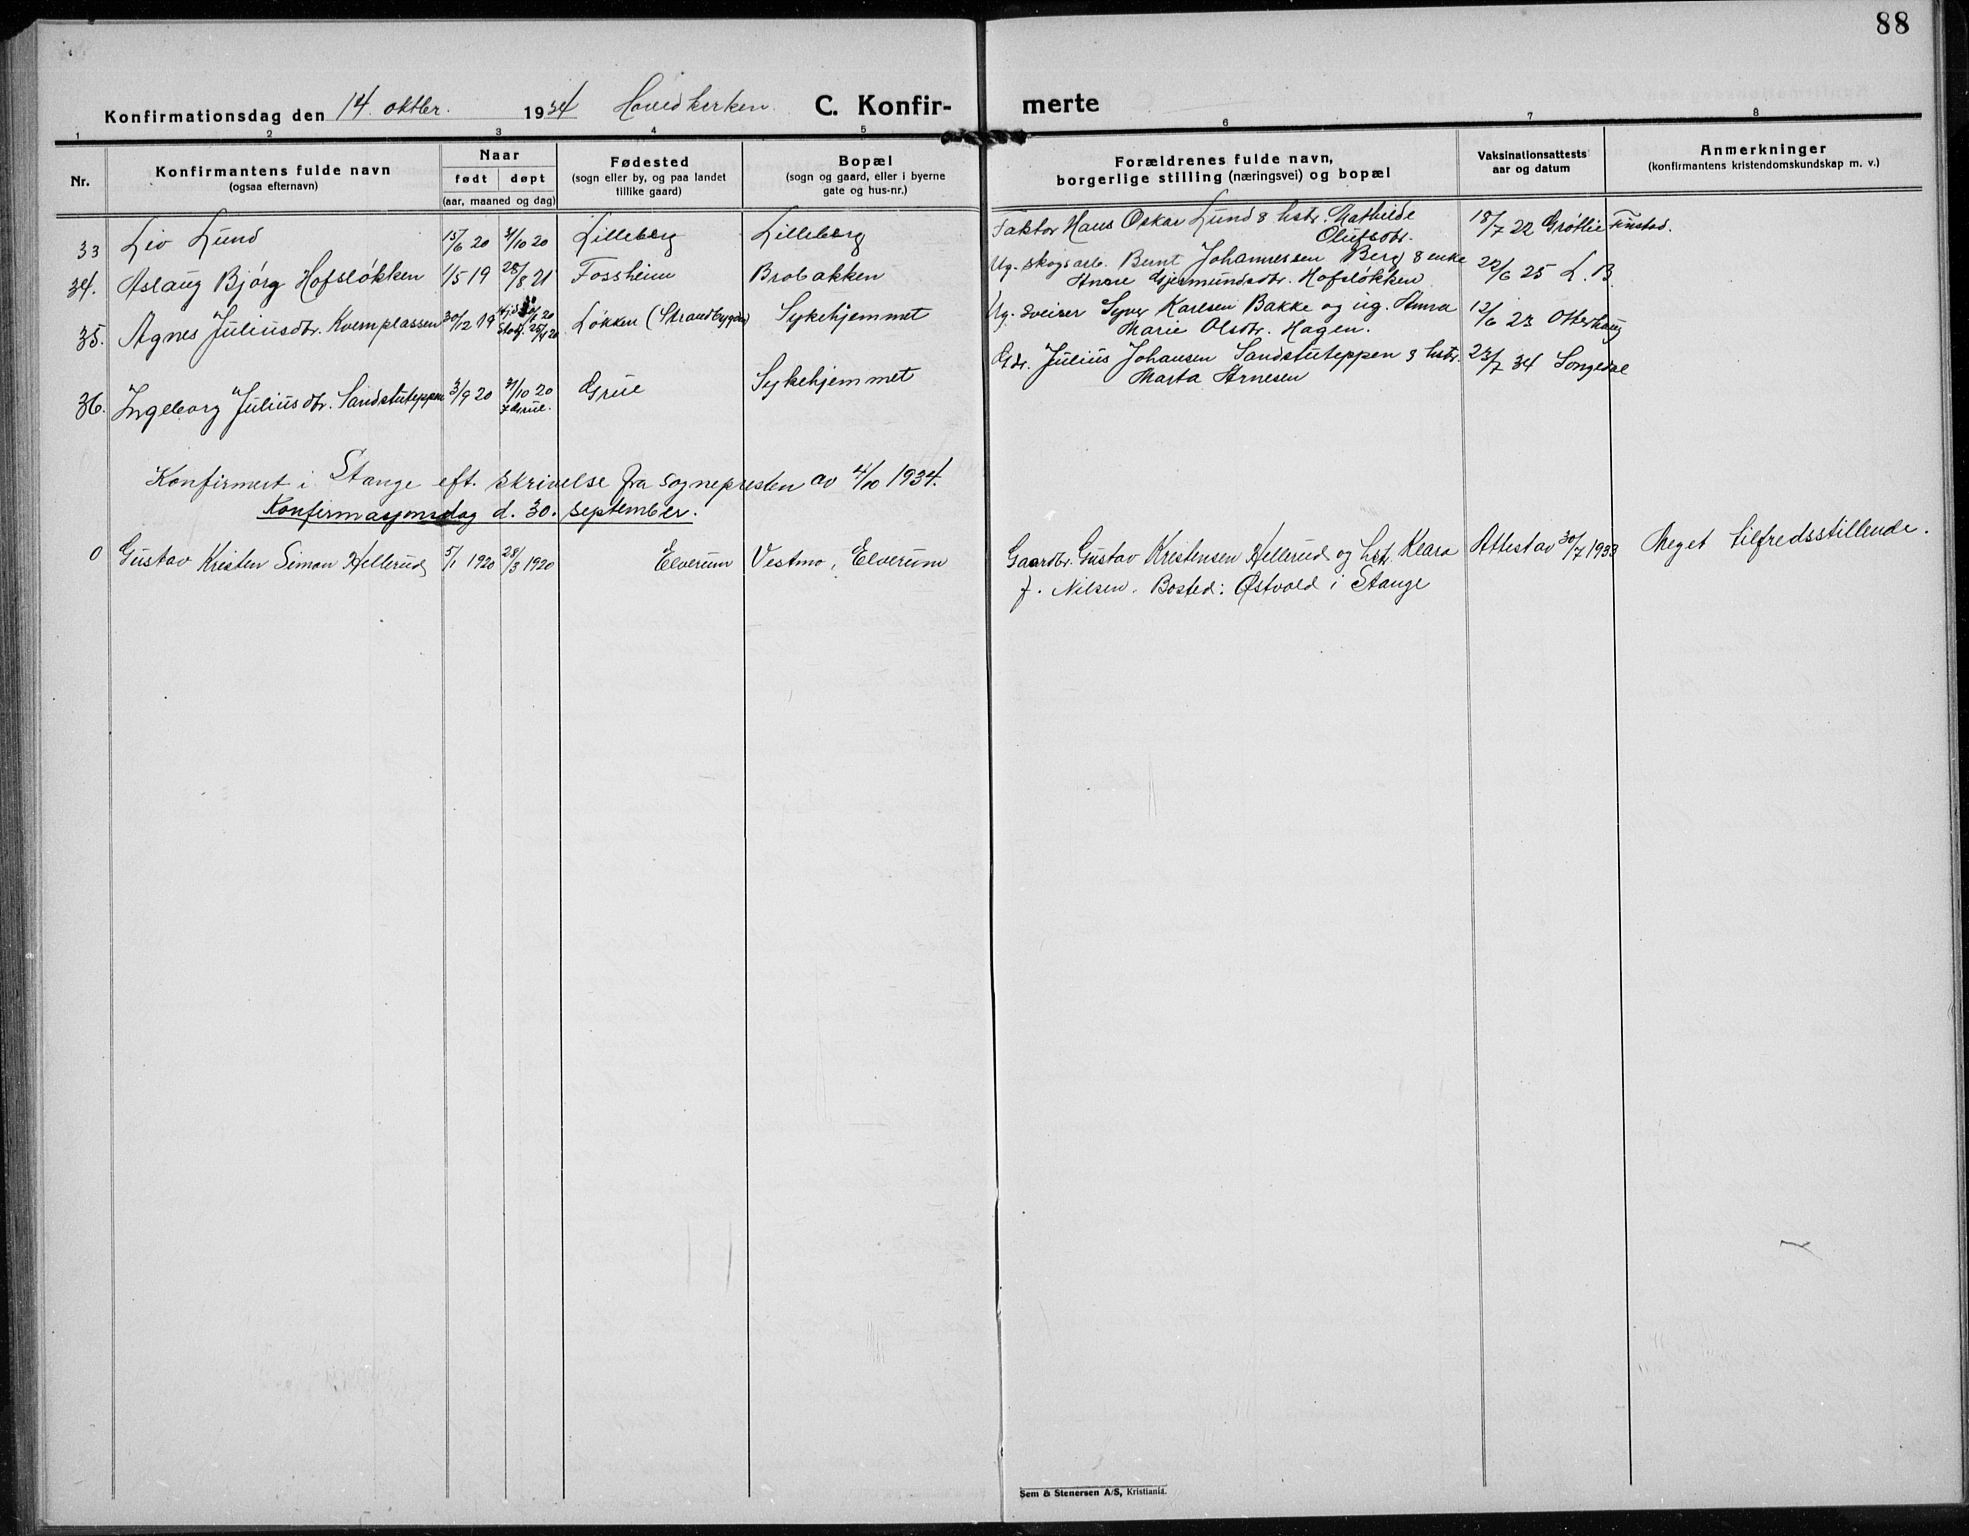 88
Konfirmationsdag den 14. oktbr. 1934 Hovedkirken C. Konfir- merte
1 2 3 4 5 6 7 8
Nr.
Konfirmantens fulde navn
(ogsaa efternavn)
Naar
født døpt
(aar, maaned og dag)
Fødested
(sogn eller by, og paa landet
tillike gaard)
Bopæl
(sogn og gaard, eller i byerne
gate og hus-nr.)
Forældrenes fulde navn,
borgerlige stilling (næringsvei) og bopæl
Vaksinationsattests
aar og datum
Anmerkninger
(konfirmantens kristendomskundskap m. v.)
33 Liv Lund 15/6 20 31/10 20 Lilleborg Lilleborg Faktor Hans Oskar Lund & hstr. Mathilde 18/7 22 Grøtlie Finstad.
Olufsdtr.
34. Aslaug Bjørg Hofsløkken 1/5 19 28/8 21 Fossheim Brobakken Ug. skogsarb. Bernt Johannessen Berg & enke 22/6 25 L. B.
Anne Gjermundsdtr. Hofsløkken
35. Agnes Juliusdtr. Kvernplassen 30/12 19 Løkken (Strandbygden) Sykehjemmet Ug. sveiser Syver Karlsen Bakke og ug. Anna 12/6 23 Otterhaug
Marie Olsdtr. Hagen.
36. Ingeborg Juliusdtr. Sandstuteppen 3/9 20 31/10 20 Grue Sykehjemmet Gdr. Julius Johansen Sandstuteppen & hstr. 23/7 34 Songedal
i Grue.
Marta Arnesen
Konfirmert i Stange eft. skrivelse fra sognepresten av 4/10 1934.
Konfirmasjonsdag d. 30. september.
0 Gustav Kristen Simon Hellerud 5/1 1920 28/3 1920 Elverum Vestmo, Elverum Gaardbr. Gustav Kristensen Hellerud og hstr. Klara Attest av 30/7 1933 Meget tilfredsstillende.
f. Nilsen. Bosted: Østvold i Stange
Sem & Stenersen A/S, Kristiania.